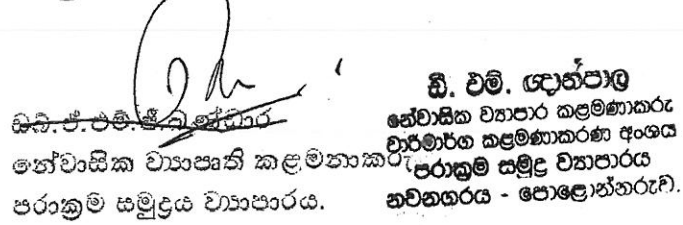 නේවාසික ව්‍යාපෘති කළමනාකරු
පරාක්‍රම සමුද්‍රය ව්‍යාපාරය.
ඩී. එම්. ඥානපාල
නේවාසික ව්‍යාපාර කළමණාකරු
වාරිමාර්ග කළමණාකරණ අංශය
පරාක්‍රම සමුද්‍ර ව්‍යාපාරය
නවනගරය - පොළොන්නරුව.